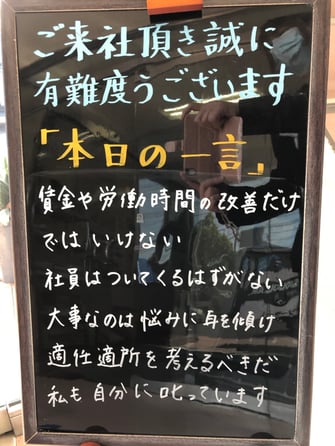 ご来社頂き誠に
有難度うございます
「本日の一言」
賃金や労働時間の改善だけ
ではいけない
社員はついてくるはずがない
大事なのは悩みに耳を傾け
適任適所を考えるべきだ
私も自分に叱っています